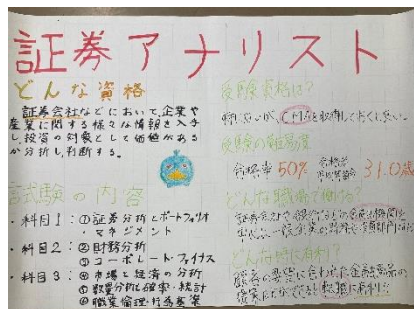 証券アナリスト
どんな資格
証券会社などにおいて、企業や
産業に関する様々な情報を入手
し、投資の対象として価値がある
か分析し、判断する。
試験の内容
・科目1:①証券分析とポートフォリオ
・マネジメント
・科目2:②財務分析
③コーポレート・ファイナンス
・科目3:④市場と経済の分析
⑤数量分析と確率・統計
⑥職業倫理・行為基準
受験資格は?
特にないが、
を取得しておくと良い。
受験の難易度
合格率 50% 合格者 平均年齢 31.0歳
どんな職場で働ける?
どんな時に有利?
顧客の要望に合わせた金融商品の
転職に有利!